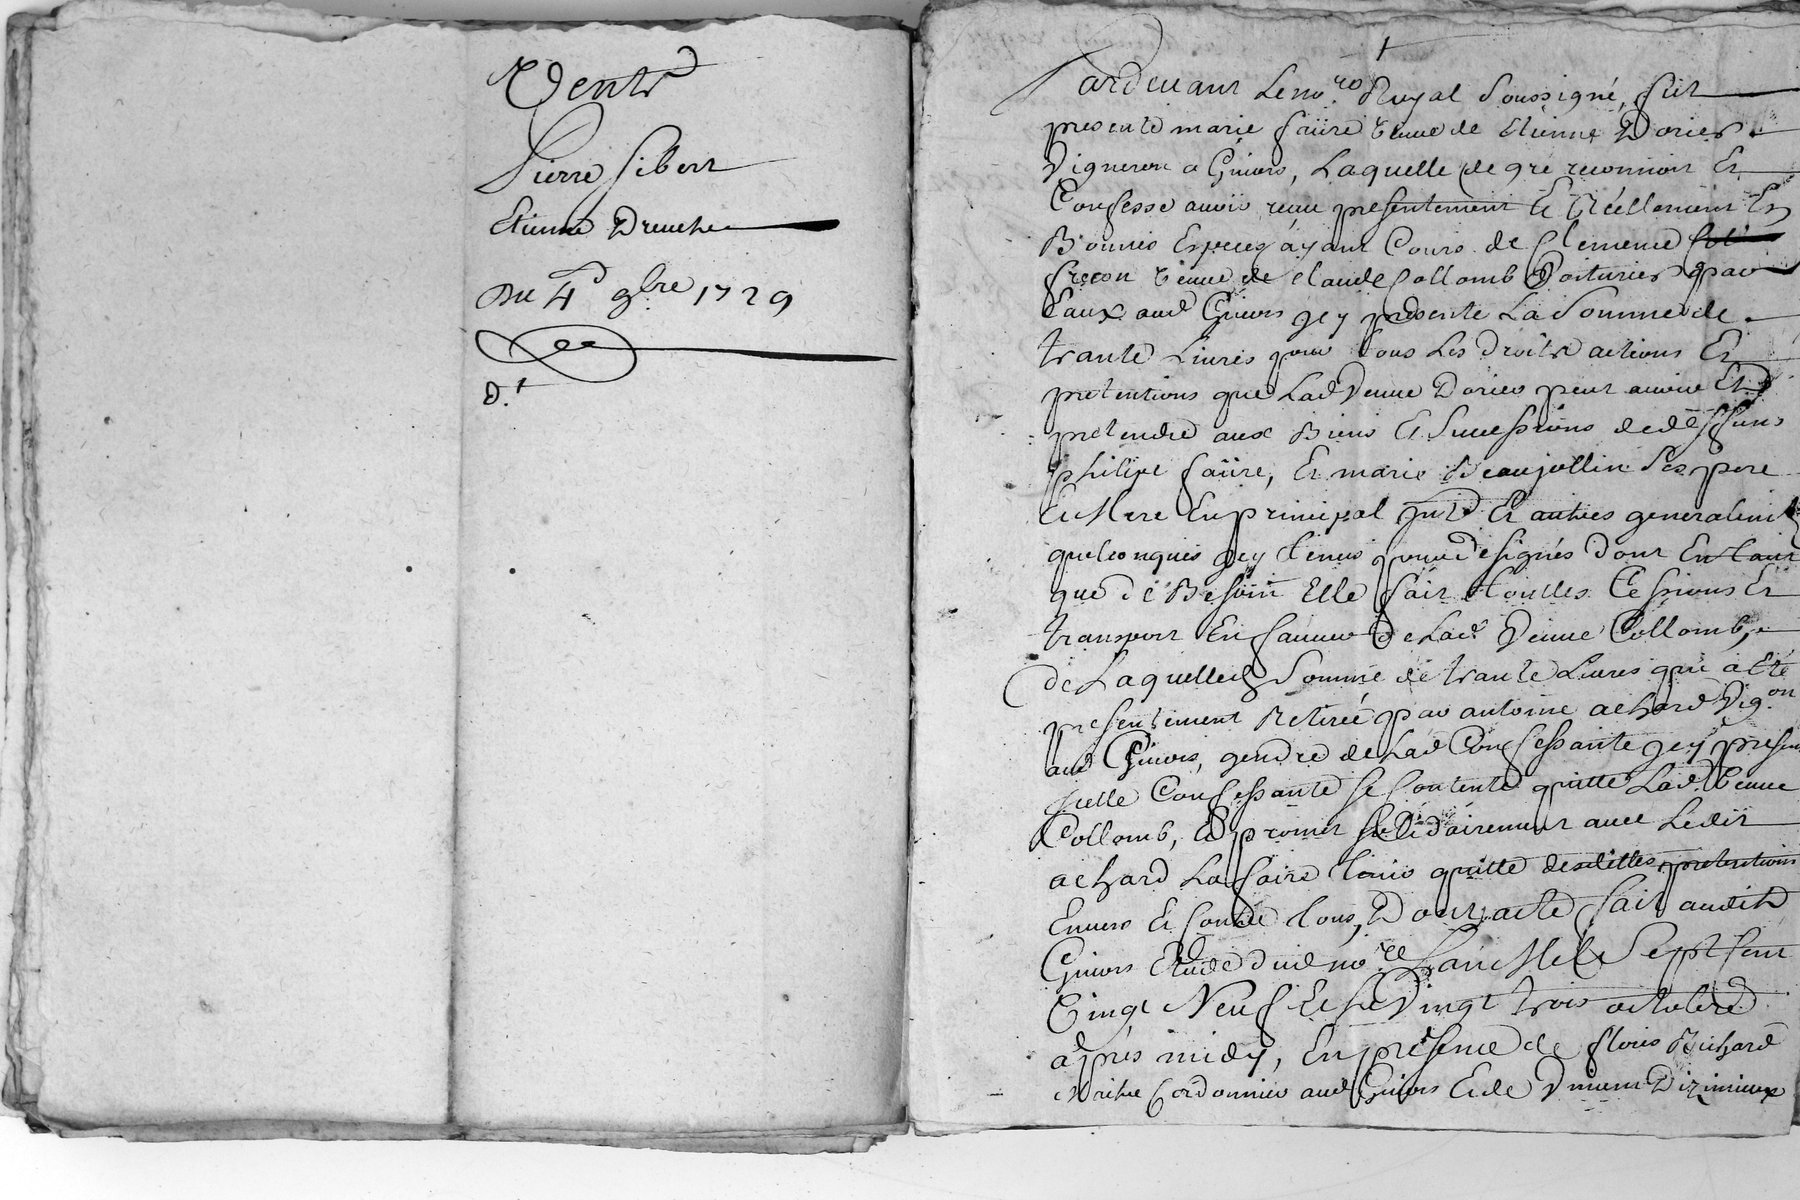 Vente
Pierre Sibert
Etienne Dreuche
Du 4e 9bre 1729
d.t
Pardevant Le no.re Royal Soussigné, fut
presente marie faüre veuve de Etienne Dorier
Vigneron a Givors, Laquelle de gré reconnoit Et
Confesse avoir receu presentement Et Réellement En
Bonnes Especes ayant Cours de Clemence
freçon veuve de claude Collomb Voiturier par
Eaux aud Givors icy presente La Somme de
trante Livres pour tous Les droits actions Et
pretentions que Lad Veuve Dorier peut avoir Et
pretendre aux Biens Et Successions de deffuns
philipe faüre, Et marie Beaujollin Ses pere
Et Mere En principal int Et autres generalemt
quelconques icy tenus pour designés dont En tant
que de Besoin Elle fait touttes Cessions Et
transport En faveur de Lad. Veuve Collomb,
de Laquelle Somme de trante Livres qui a Eté
presentement Retirée par antoine achard Vig.on
aud Givors, gendre de Lad Confessante icy present
icelle Confessante Se Contente quitte Lad. Veuve
Collomb, Et promet Solidairement avec Ledit
achard La faire tenir quitte desdittes pretentions
Envers Et Contre tous, Dont acte fait audit
Givors Etude dud no.re L'an Mil Sept Cent
Vingt Neuf Et Le Vingt trois octobre
après midy, En presence de floris Richard
Maitre Cordonnier aud Givors Et de Vincent Dizimieux